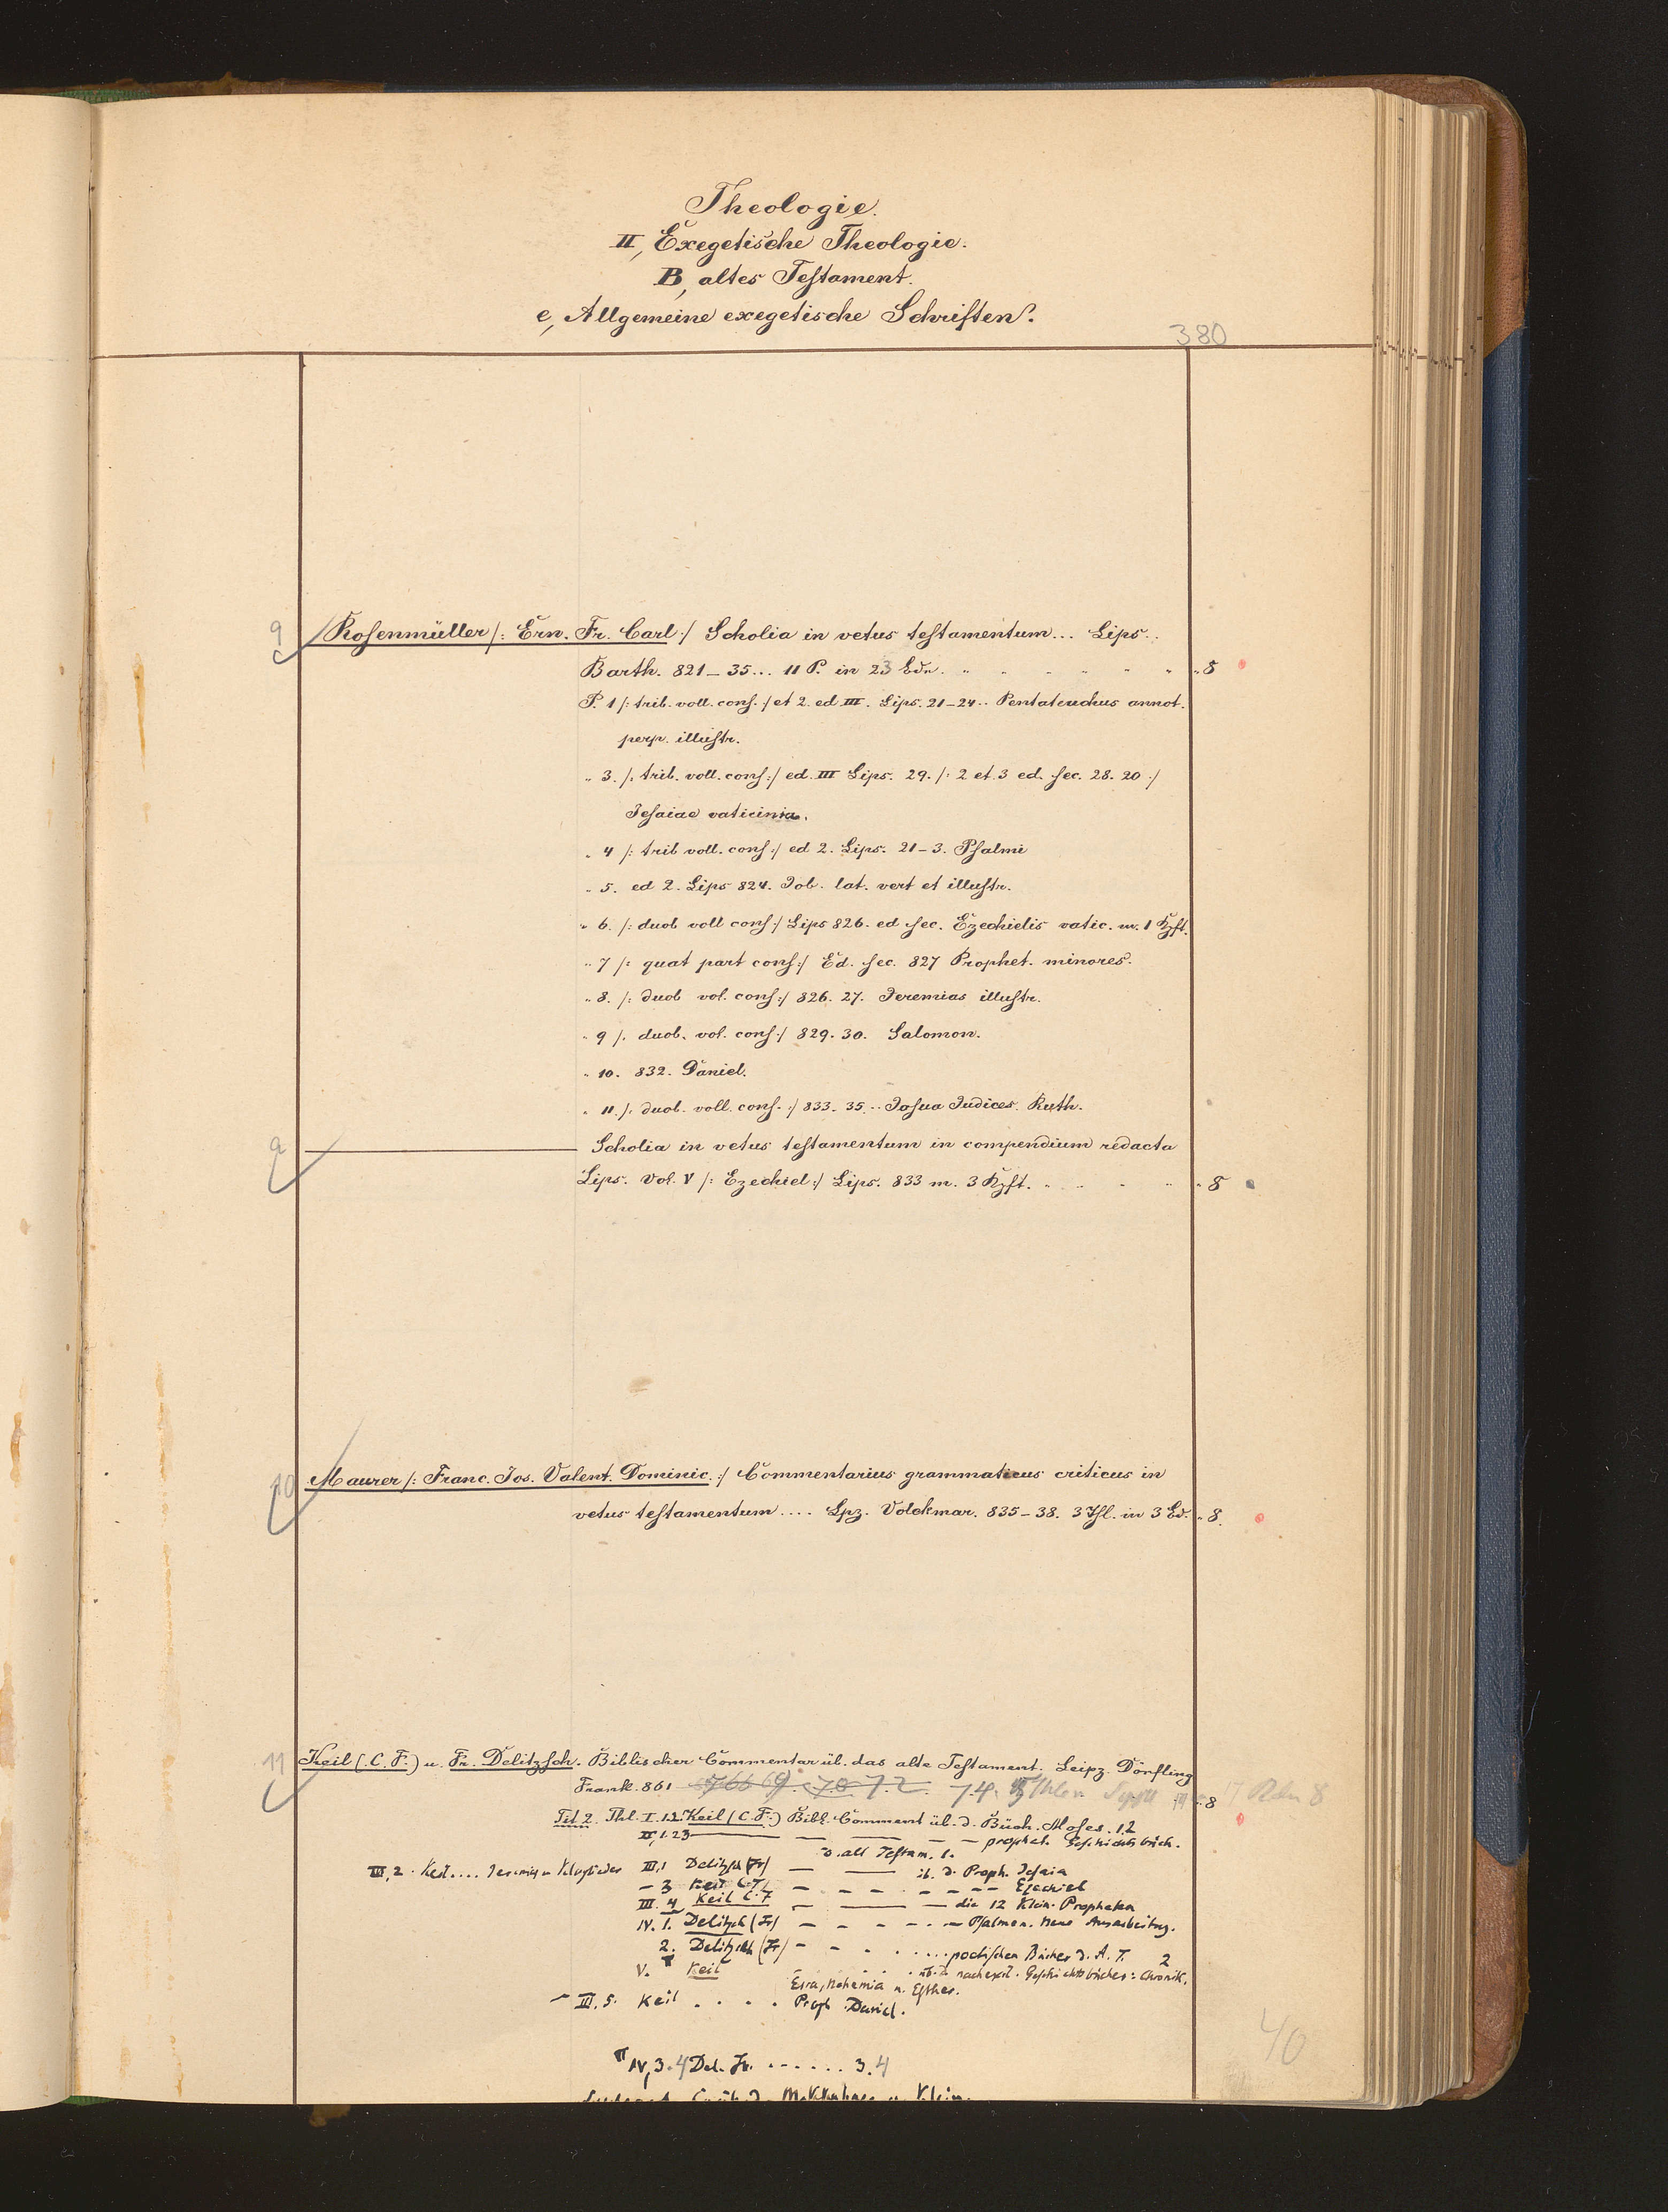 Theologie.
II, Exegetische Theologie.
B, altes Testament.
e, Allgemeine exegetische Schriften.
380
9 Rosenmüller /: Ern. Fr. Carl :/ Scholia in vetus testamentum... Lips.
Barth. 821-35... 11 P. in 23 Bdn. " " " " " " " 8
P. 1 /: trib. voll. cons. :/ et 2. ed III. Lips. 21-24.. Pentateuchus annot.
perp. illustr.
" 3. /: trib. voll. cons :/ ed. III Lips. 29. /: 2 et 3 ed. sec. 28. 20 :/
Jesaiae vaticinia.
" 4 /: trib voll. cons :/ ed 2. Lips. 21-3. Psalmi
" 5. ed 2. Lips 824. Job. lat. vert et illustr.
" 6. /: duob voll cons :/ Lips 826. ed sec. Ezechielis vatic. m. 1 Kpft.
" 7 /: quat part cons :/ Ed. sec. 827 Prophet. minores.
" 8. /: duob vol. cons :/ 826. 27. Jeremias illustr.
" 9 /: duob. vol. cons :/ 829. 30. Salomon.
" 10. 832. Daniel.
" 11. /: duob. voll. cons. :/ 833. 35... Josua Judices. Ruth.
9 — Scholia in vetus testamentum in compendium redacta
Lips. Vol. V /: Ezechiel :/ Lips. 833 m. 3 Kpft. " " " " " 8
10 Maurer /: Franc. Jos. Valent. Dominic. :/ Commentarius grammaticus criticus in
vetus testamentum.... Lpz. Volckmar. 835-38. 3 Thl. in 3 Bd. " 8.
11 Keil (C. F.) u. Fr. Delitzsch. Biblischer Commentar üb. das alte Testament. Leipz. Dörfling
Frank. 861 766 69. 70 72. 74. 8
Tit 2. Thl. I. 1.2. Keil (C. F.) Bibl. Comment üb. d. Büch. Moses. 1.2
II, 1.2.3 — — — — prophet. Geschichtsbüch.
d. alt Testam. 1.
III, 2. Keil.... Jeremia u Klaglieder III, 1 Delitzsch (Fr) — — üb. d. Proph. Jesaia
— 3 Keil C. F. — — — — — — Ezechiel
III. 4 Keil C. F — — — die 12 Klein. Propheten
IV. 1. Delitzsch (Fr) — — — — — Psalmen. Neue Ausarbeitug.
2. Delitzsch (Fr) — — . ..... poetischen Bücher d. A. T. 2
V. Keil . . . . üb. d. nachexil. Geschichtsbücher: Chronik,
Esra, Nehemia u. Esther.
— III. 5. Keil . . . . Proph Daniel.
IV, 3.4 Del. Fr. . . . . . . 3.4
40